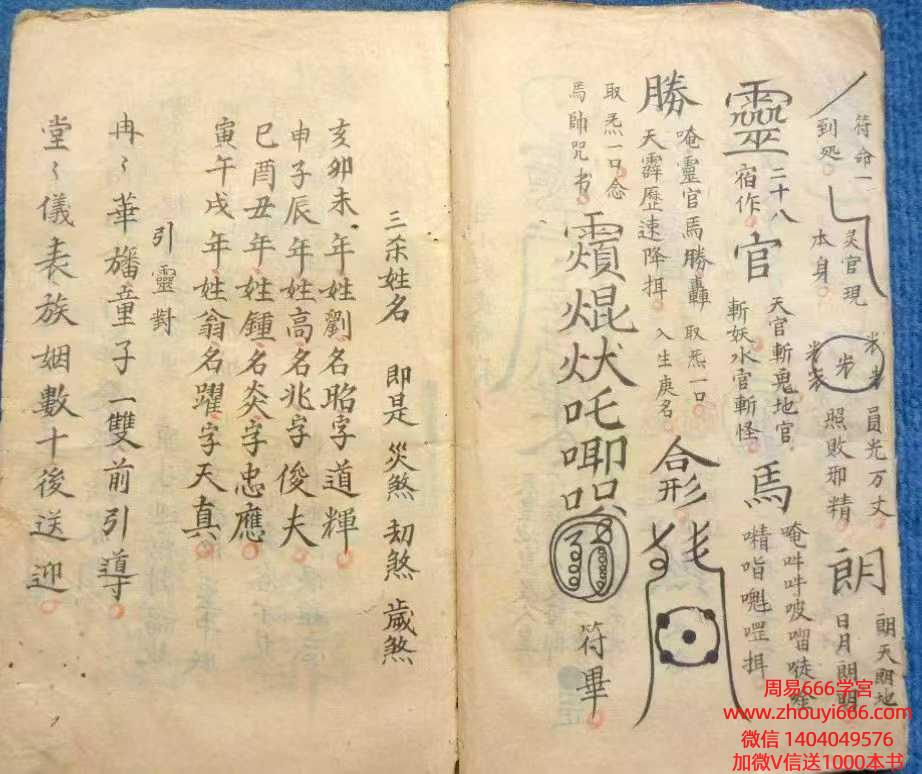 符命一
到処
灵官現
本身
員光万丈
照敗邪精
朗
朗天朗地
日月朗明
靈
二十八
宿作
官
天官斬鬼地官
斬妖水官斬怪
馬
勝
唵靈官馬勝轟 取炁一口
天霹歷速降揖 入生庚名
合形
取炁一口念
馬帥咒书
符畢
三杀姓名 即是 災煞 刧煞 歲煞
亥卯未年姓劉名昭字道輝
申子辰年姓高名兆字俊夫
巳酉丑年姓鍾名炎字忠應
寅午戌年姓翁名躍字天真
引靈對
冉〻華旛童子一雙前引導
堂〻儀表族姻數十後送迎
周易666学宫
www.zhouyi666.com
微信 1404049576
加微V信送1000本书